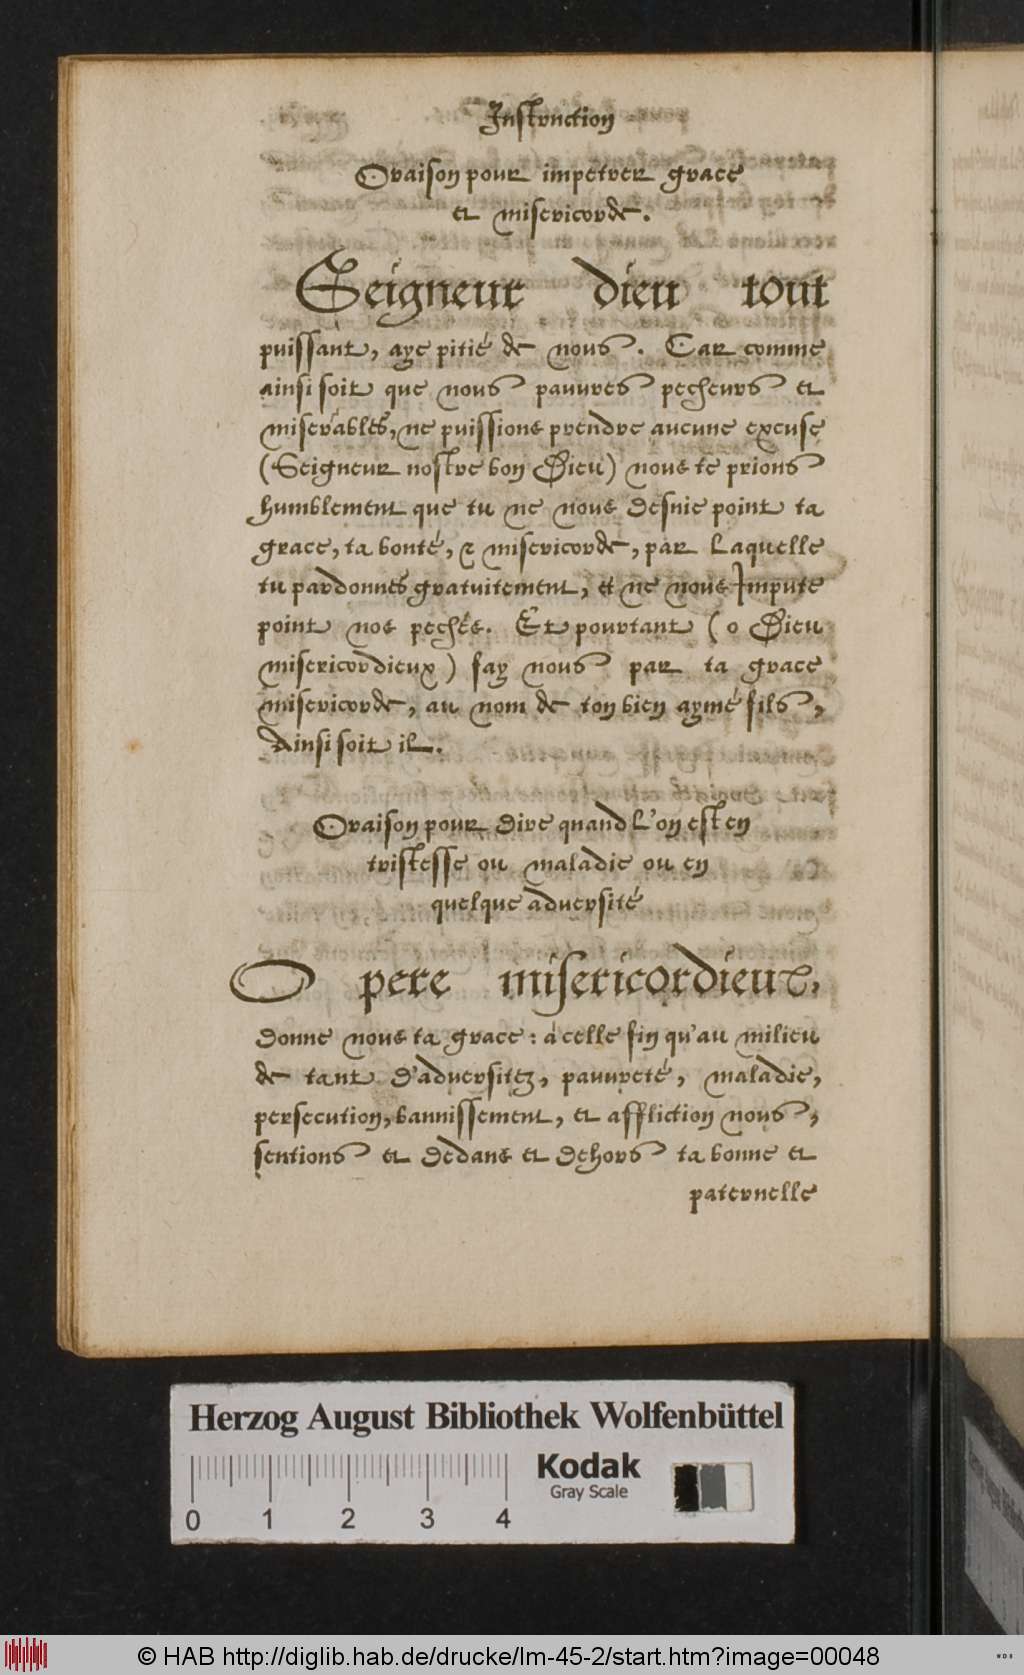 Instruction
Oraison pour impetrer grace
et misericorde.
Seigneur dieu tout
puissant, aye pitié de nous. Car comme
ainsi soit que nous pauvres pecheurs et
miserables, ne puissions prendre aucune excuse
(Seigneur nostre bon Dieu) nous te prions
humblement que tu ne nous desnie point ta
grace, ta bonté, & misericorde, par laquelle
tu pardonnes gratuitement, et ne nous Impute
point nos pechés. Et pourtant (o Dieu
misericordieux) fay nous par ta grace
misericorde, au nom de ton bien aymé fils,
Ainsi soit il.
Oraison pour dire quand l'on est en
tristesse ou maladie ou en
quelque adversité
O pere misericordieux,
donne nous ta grace: à celle fin qu'au milieu
de tant d'adversitez, pauvreté, maladie,
persecution, bannissement, et affliction nous,
sentions et dedans et dehors ta bonne et
paternelle
Herzog August Bibliothek Wolfenbüttel
Kodak
Gray Scale
0 1 2 3 4
© HAB http://diglib.hab.de/drucke/lm-45-2/start.htm?image=00048